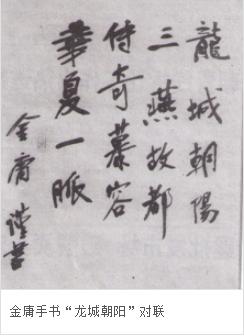 龍城朝陽
三燕故都
傳奇慕容
華夏一脈
金庸 謹書
金庸手书“龙城朝阳”对联